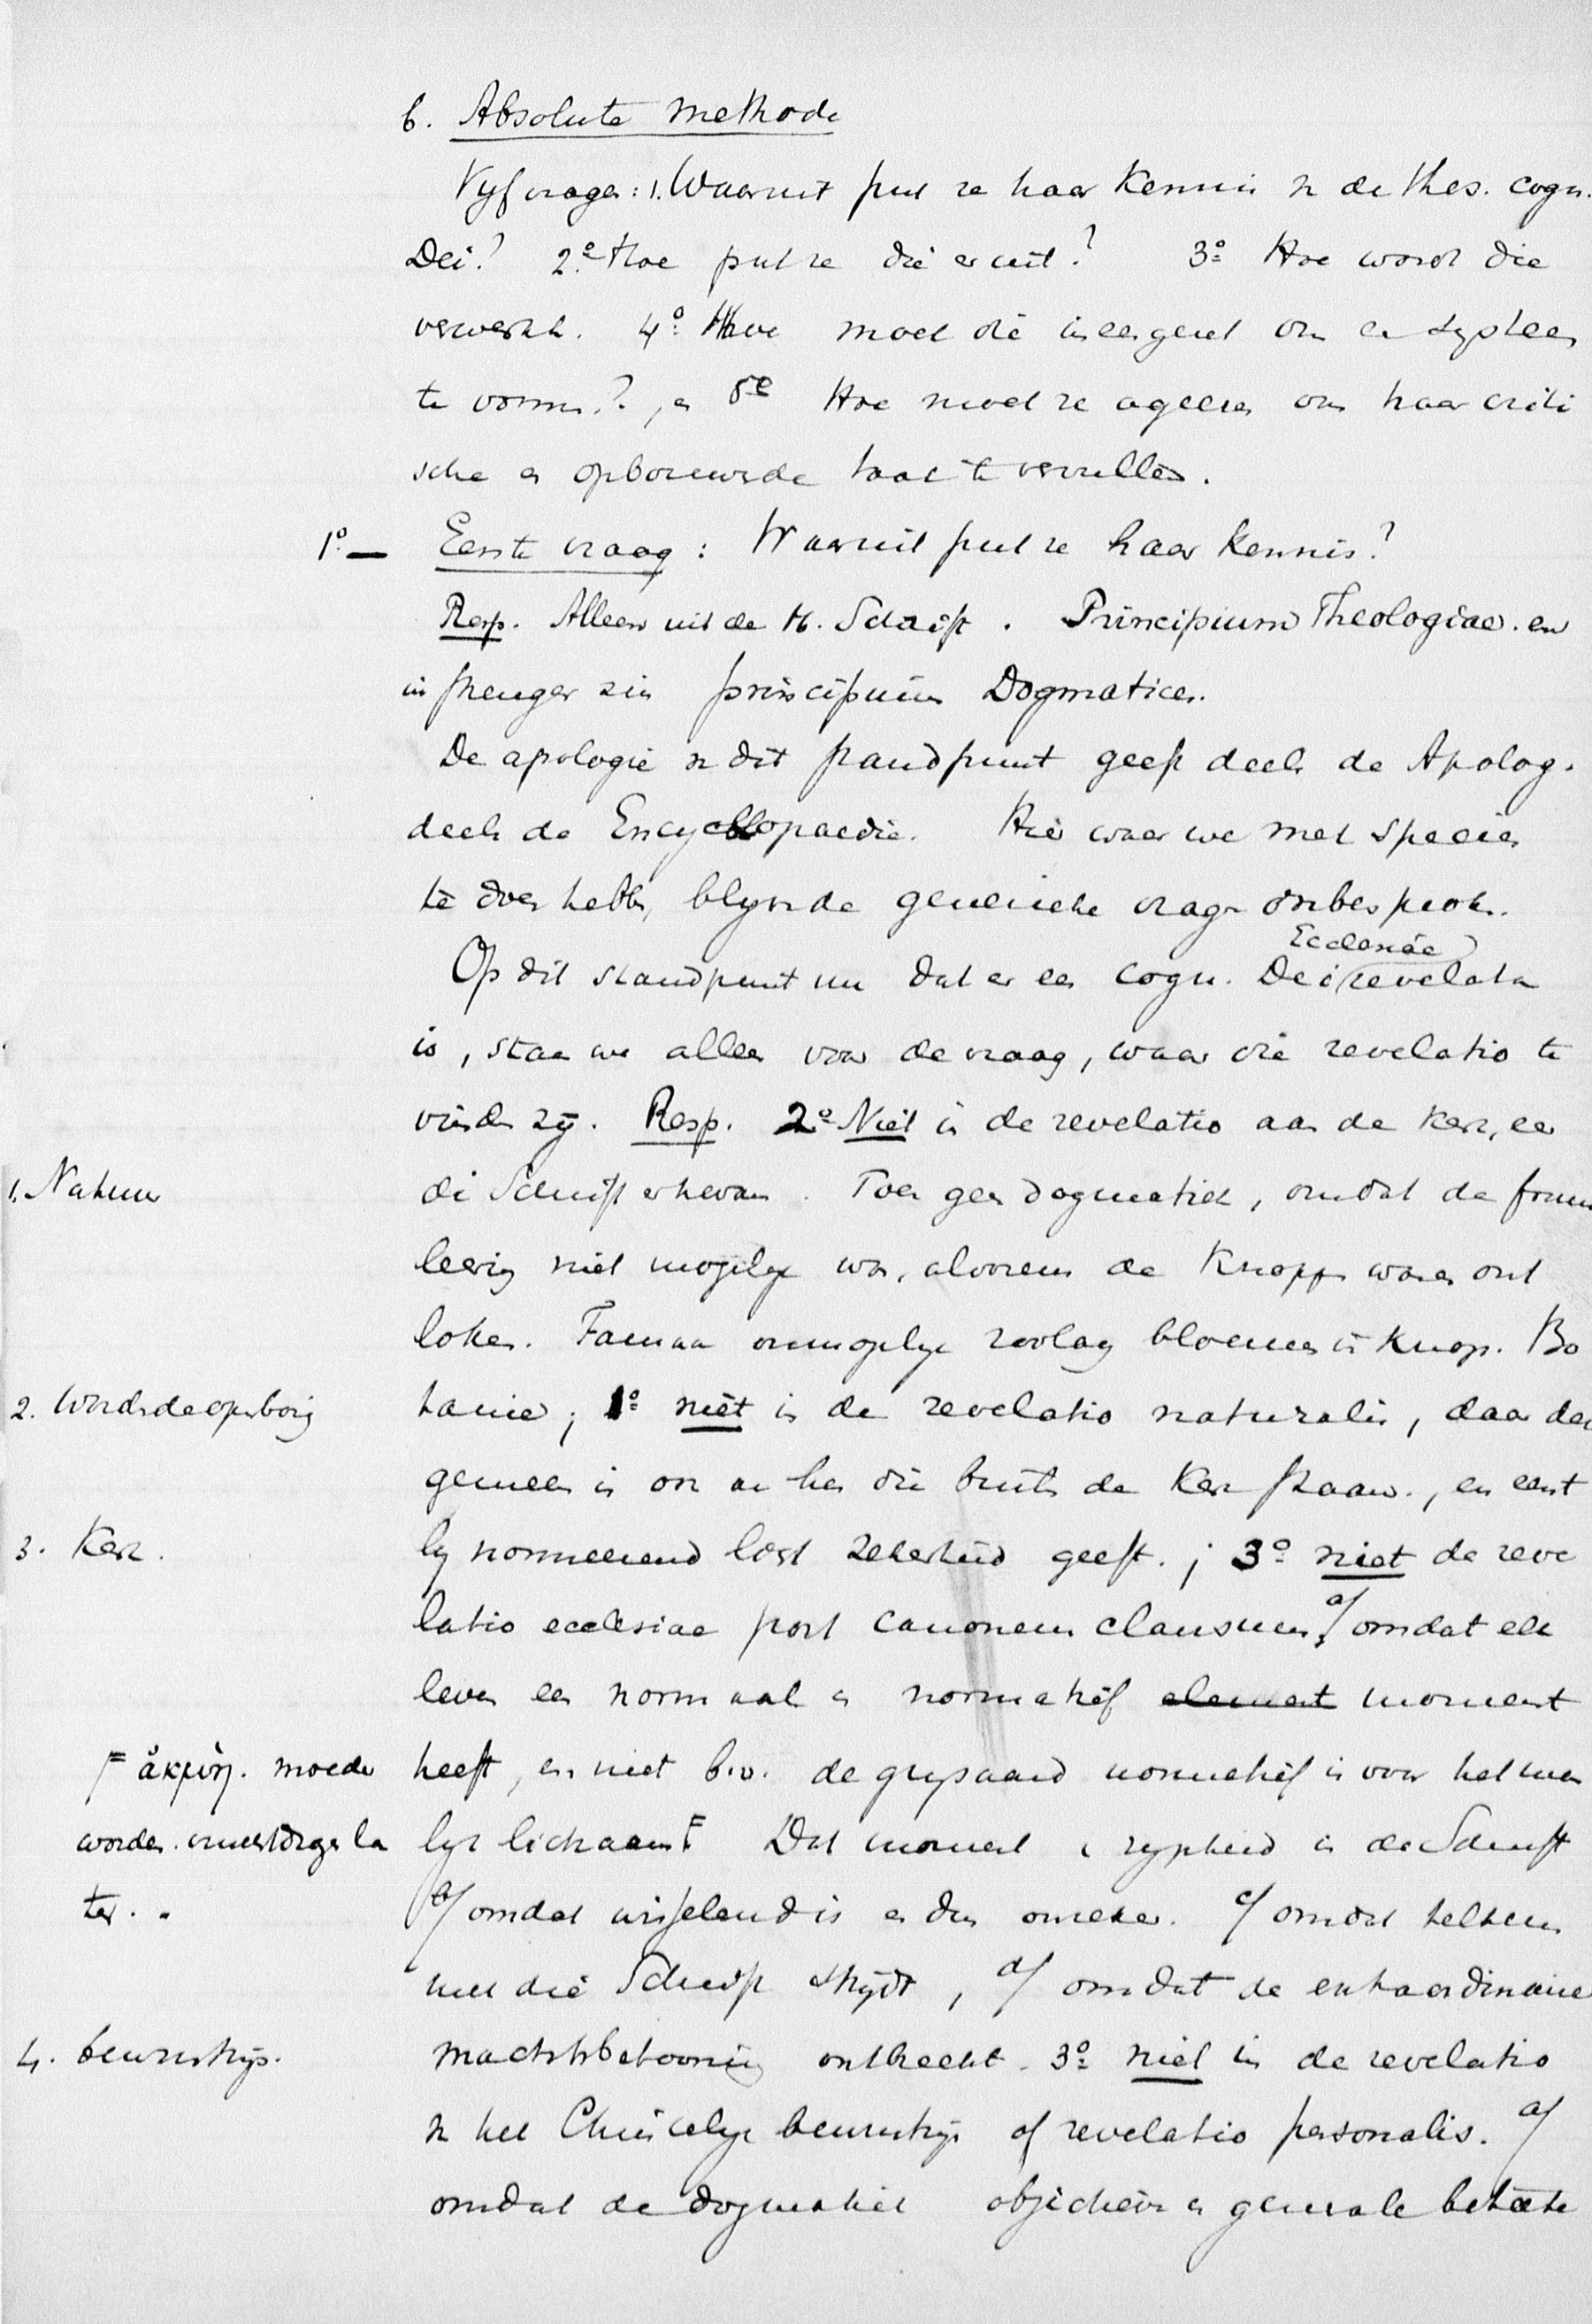 b. Absolute methode
Vyf vragen: 1. Waaruit put ze haar kennis v de thes. cogn.
Dei? 2º Hoe put ze die er uit? 3º Hoe word die
verwerkt. 4º Hoe moet die ineengezet om een systeem
te vormen?, en 5e Hoe moet ze ageeren om haar criti
sche en opbouwende taak te vervullen.
1º — Eerste vraag: Waaruit put ze haar kennis?
Resp. Alleen uit de H. Schrift. Principium Theologiae. en
in strenger zin principium Dogmatices.
De apologie v dit standpunt geeft deels de Apolog.
deels de Encyclopaedie. Hier waar we met species
te doen hebben, blyven de generieke vragen onbesproken.
Ecclesiae
Op dit standpunt nu dat er een cogn. Dei revelata
is, staan we alleen voor de vraag, waar die revelatio te
vinden zij. Resp. 2º Niet in de revelatio aan de kerk, eer
1. Natuur
de Schrift er kwam. Toen geen dogmatiek, omdat de formu
leering niet mogelyk was, alvorens de knoppen waren ont
loken. Fauna onmogelyk zoolang bloemen in knop. Bo
2. Woordsdeopenbaring
tanie; 1º niet in de revelatio naturalis, daar deze
gemeen is on en hen die buiten de Kerk staan., en eerst
3. Kerk.
ly normeerend lost zekerheid geeft.; 3º niet de reve
latio ecclesiae post canonem clausum, a/ omdat elk
leven een normaal en normatief element moment
F ἀκμή. moeder
heeft, en niet b.v. de grysaard normatief is voor het men
worden
lyk lichaam F Dat moment v rypheid is de Schrift
ter.
b/ omdat wisselend is en dus onzeker. c/ omdat telkens
met die Schrift strijdt, d/ omdat de extraordinaire
4. bewustzijn.
machtsbetooning ontbreekt. 3º niet in de revelatio
v het Christelyk bewustzijn of revelatio personalis. a/
omdat de dogmatiek objectieve en generale